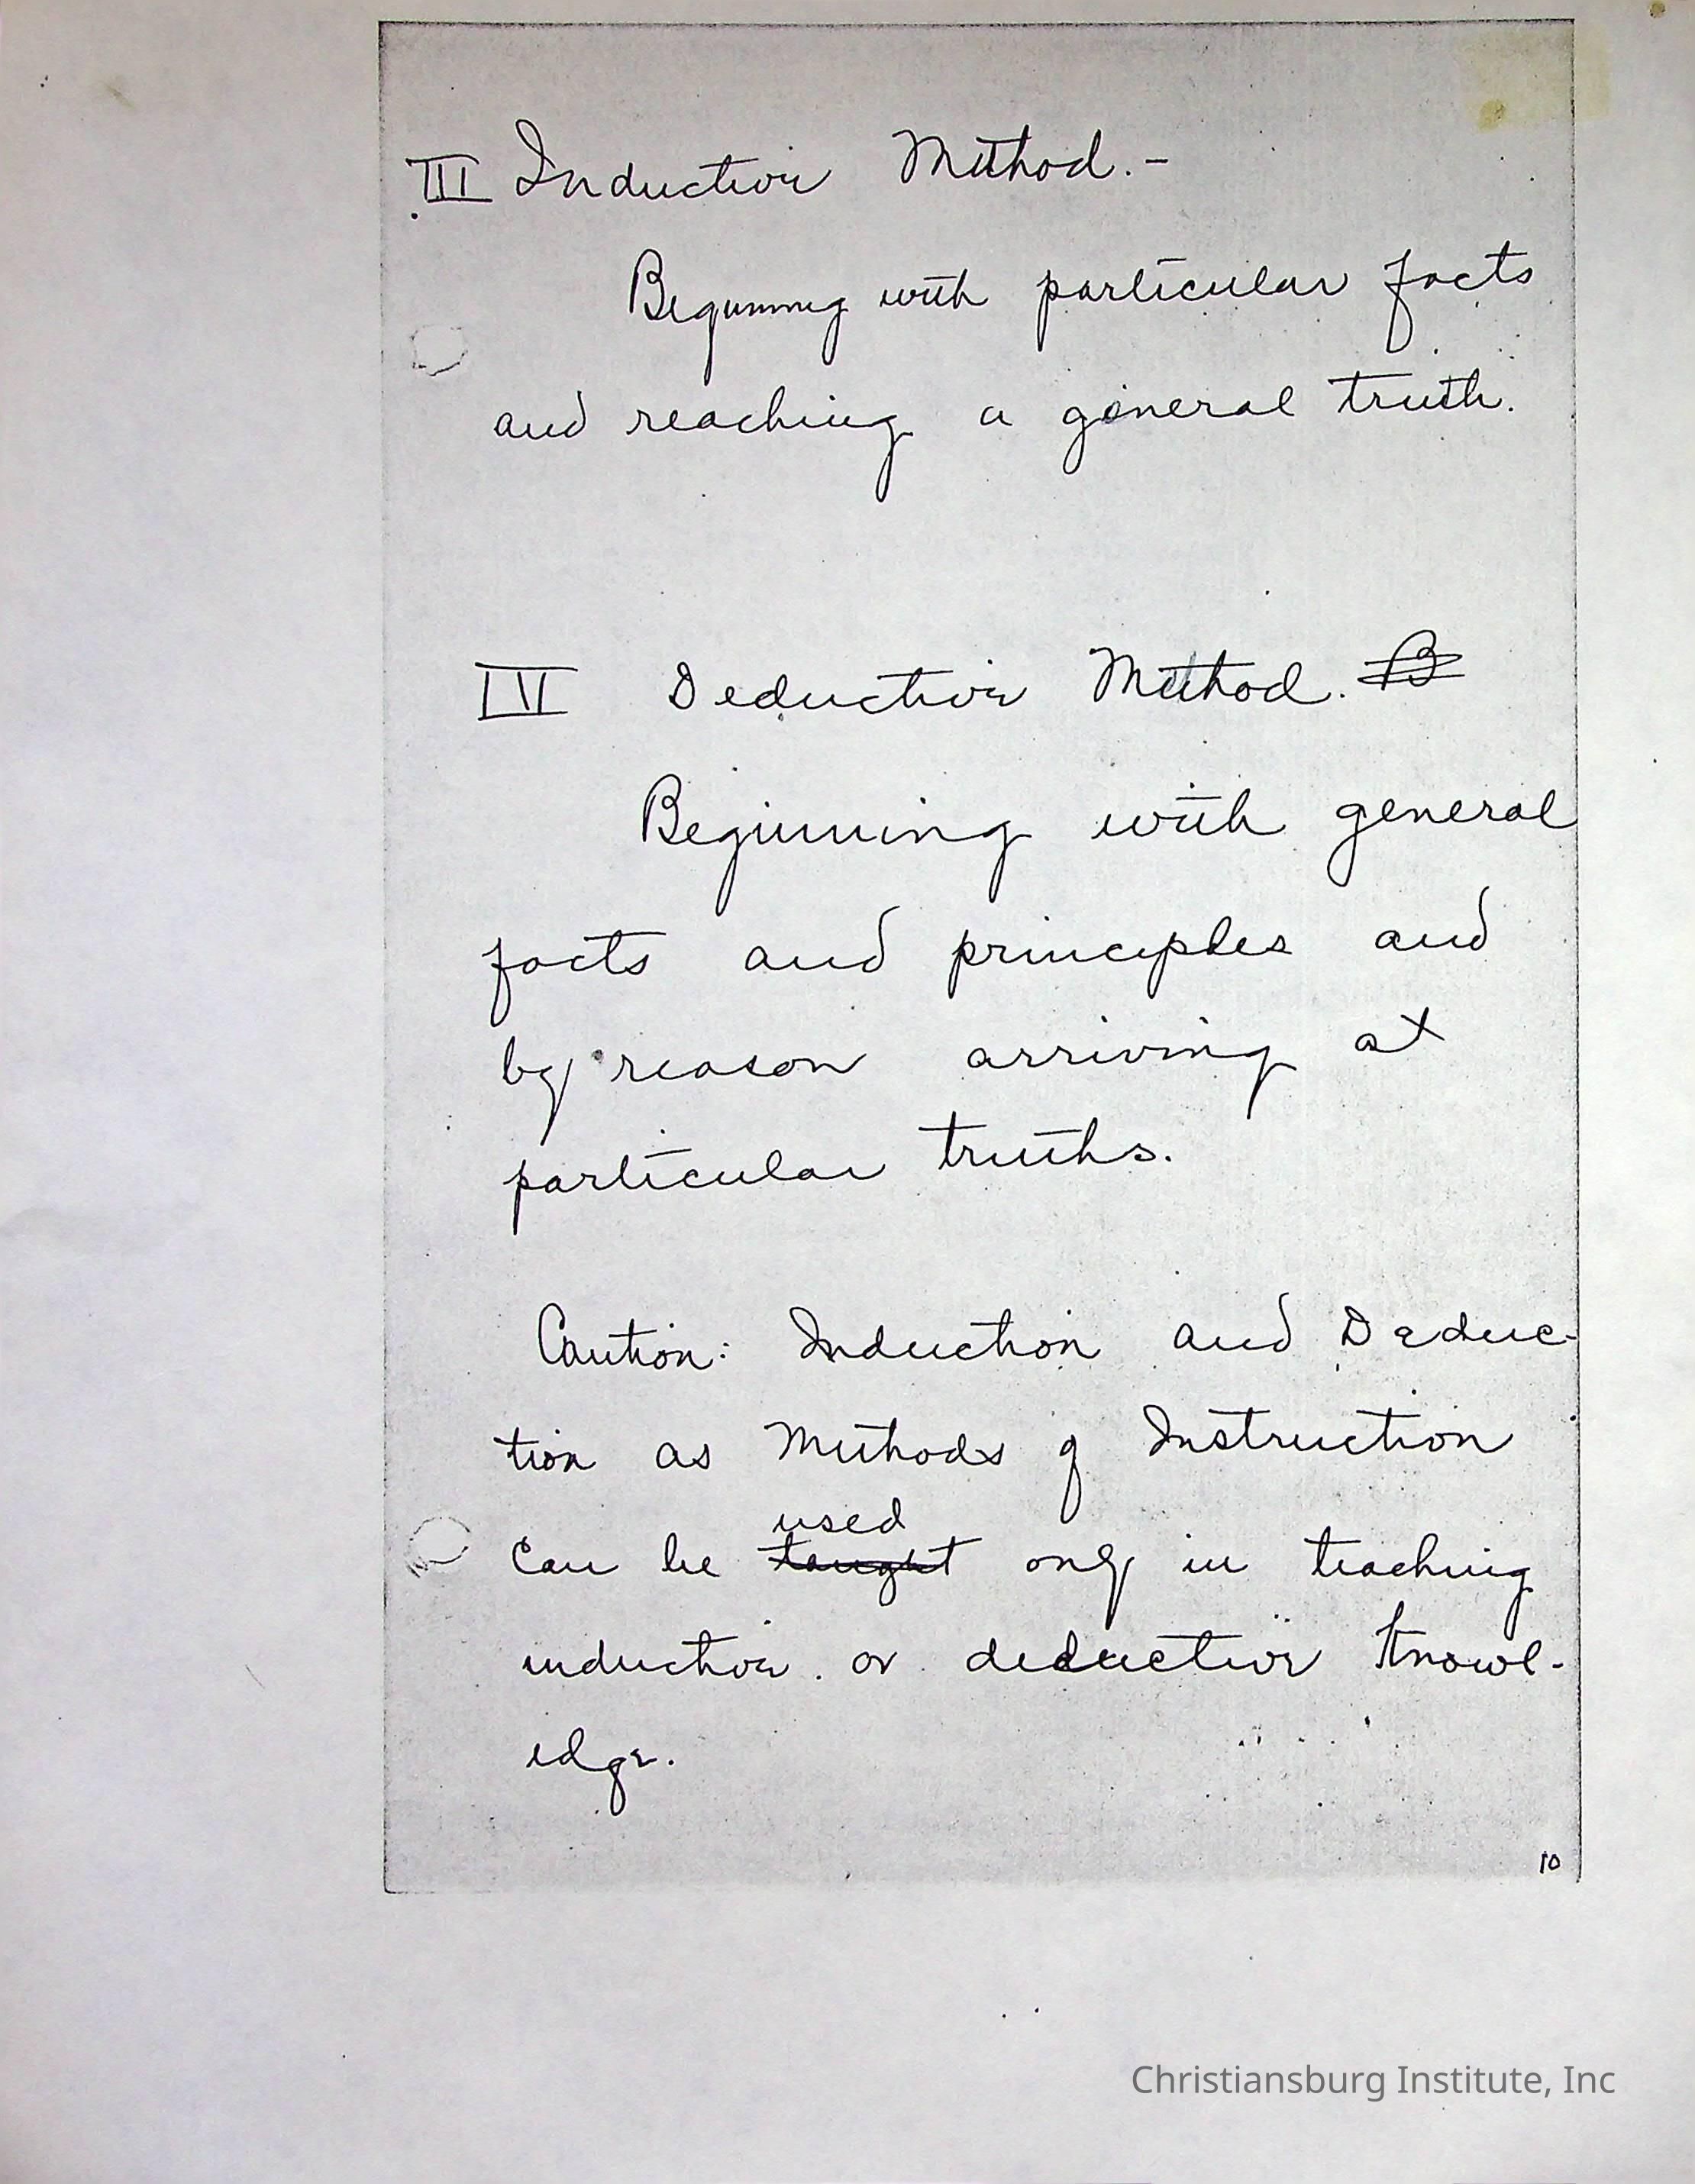 III Inductive Method.-
Beginning with particular facts
and reaching a general truth.
IV Deductive Method. B
Beginning with general
facts and principles and
by reason arriving at
particular truths.
Caution: Induction and Deduc-
tion as Methods of Instruction
used
can be taught only in teaching
inductive or deductive Knowl-
edge.
10
Christiansburg Institute, Inc